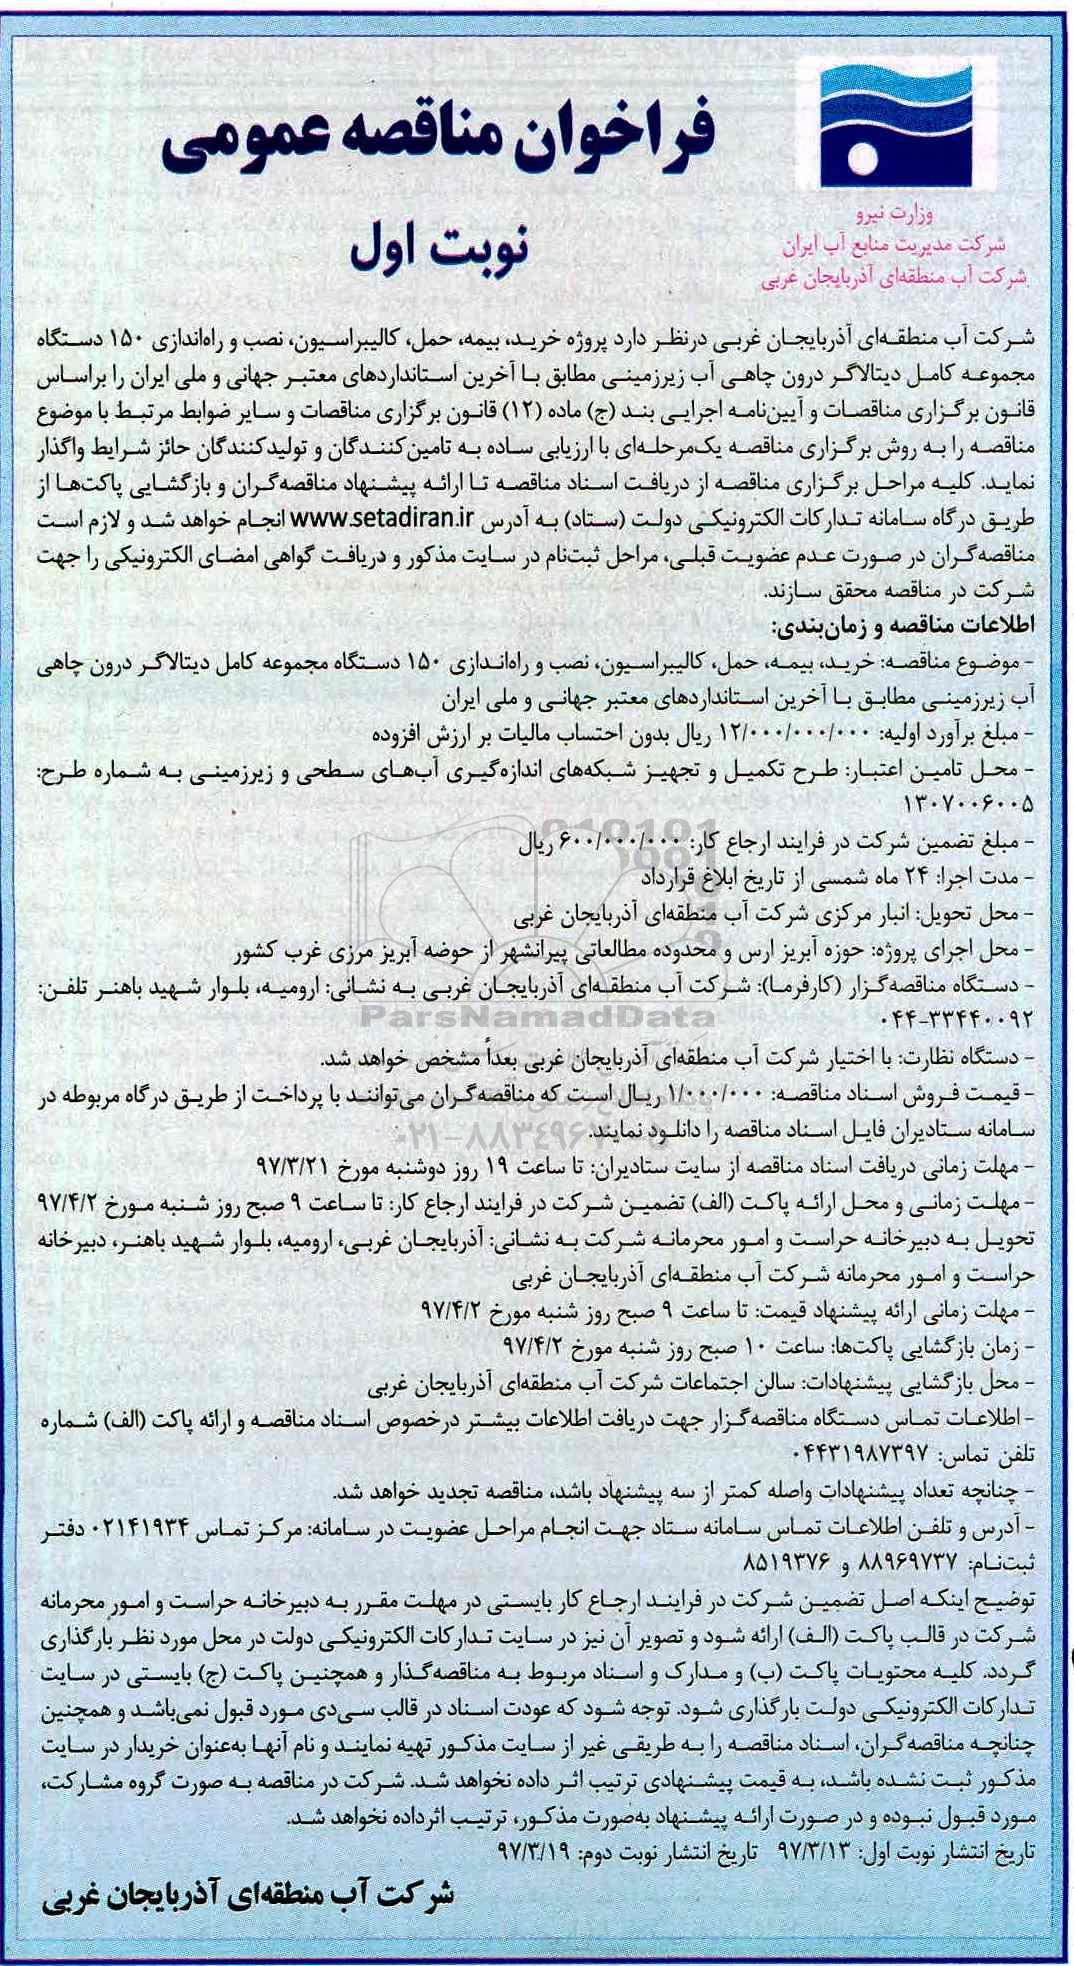 فراخوان مناقصه عمومی
نوبت اول
وزارت نیرو
شرکت مدیریت منابع آب ایران
شرکت آب منطقه‌ای آذربایجان غربی
شرکت آب منطقه‌ای آذربایجان غربی درنظر دارد پروژه خرید، بیمه، حمل، کالیبراسیون، نصب و راه‌اندازی ۱۵۰ دستگاه
مجموعه کامل دیتالاگر درون چاهی آب زیرزمینی مطابق با آخرین استانداردهای معتبر جهانی و ملی ایران را براساس
قانون برگزاری مناقصات و آیین‌نامه اجرایی بند (ج) ماده (۱۲) قانون برگزاری مناقصات و سایر ضوابط مرتبط با موضوع
مناقصه را به روش برگزاری مناقصه یک‌مرحله‌ای با ارزیابی ساده به تامین‌کنندگان و تولیدکنندگان حائز شرایط واگذار
نماید. کلیه مراحل برگزاری مناقصه از دریافت اسناد مناقصه تا ارائه پیشنهاد مناقصه‌گران و بازگشایی پاکت‌ها از
طریق درگاه سامانه تدارکات الکترونیکی دولت (ستاد) به آدرس www.setadiran.ir انجام خواهد شد و لازم است
مناقصه‌گران در صورت عدم عضویت قبلی، مراحل ثبت‌نام در سایت مذکور و دریافت گواهی امضای الکترونیکی را جهت
شرکت در مناقصه محقق سازند.
اطلاعات مناقصه و زمان‌بندی:
- موضوع مناقصه: خرید، بیمه، حمل، کالیبراسیون، نصب و راه‌اندازی ۱۵۰ دستگاه مجموعه کامل دیتالاگر درون چاهی
آب زیرزمینی مطابق با آخرین استانداردهای معتبر جهانی و ملی ایران
- مبلغ برآورد اولیه: ۱۲/۰۰۰/۰۰۰/۰۰۰ ریال بدون احتساب مالیات بر ارزش افزوده
- محل تامین اعتبار: طرح تکمیل و تجهیز شبکه‌های اندازه‌گیری آب‌های سطحی و زیرزمینی به شماره طرح:
۱۳۰۷۰۰۶۰۰۵
- مبلغ تضمین شرکت در فرایند ارجاع کار: ۶۰۰/۰۰۰/۰۰۰ ریال
- مدت اجرا: ۲۴ ماه شمسی از تاریخ ابلاغ قرارداد
- محل تحویل: انبار مرکزی شرکت آب منطقه‌ای آذربایجان غربی
- محل اجرای پروژه: حوزه آبریز ارس و محدوده مطالعاتی پیرانشهر از حوضه آبریز مرزی غرب کشور
- دستگاه مناقصه‌گزار (کارفرما): شرکت آب منطقه‌ای آذربایجان غربی به نشانی: ارومیه، بلوار شهید باهنر تلفن:
۰۴۴-۳۳۴۴۰۰۹۲
ParsNamadData
- دستگاه نظارت: با اختیار شرکت آب منطقه‌ای آذربایجان غربی بعداً مشخص خواهد شد.
- قیمت فروش اسناد مناقصه: ۱/۰۰۰/۰۰۰ ریال است که مناقصه‌گران می‌توانند با پرداخت از طریق درگاه مربوطه در
سامانه ستادیران فایل اسناد مناقصه را دانلود نمایند.
- مهلت زمانی دریافت اسناد مناقصه از سایت ستادیران: تا ساعت ۱۹ روز دوشنبه مورخ ۹۷/۳/۲۱
- مهلت زمانی و محل ارائه پاکت (الف) تضمین شرکت در فرایند ارجاع کار: تا ساعت ۹ صبح روز شنبه مورخ ۹۷/۴/۲
تحویل به دبیرخانه حراست و امور محرمانه شرکت به نشانی: آذربایجان غربی، ارومیه، بلوار شهید باهنر، دبیرخانه
حراست و امور محرمانه شرکت آب منطقه‌ای آذربایجان غربی
- مهلت زمانی ارائه پیشنهاد قیمت: تا ساعت ۹ صبح روز شنبه مورخ ۹۷/۴/۲
- زمان بازگشایی پاکت‌ها: ساعت ۱۰ صبح روز شنبه مورخ ۹۷/۴/۲
- محل بازگشایی پیشنهادات: سالن اجتماعات شرکت آب منطقه‌ای آذربایجان غربی
- اطلاعات تماس دستگاه مناقصه‌گزار جهت دریافت اطلاعات بیشتر درخصوص اسناد مناقصه و ارائه پاکت (الف) شماره
تلفن تماس: ۰۴۴۳۱۹۸۷۳۹۷
- چنانچه تعداد پیشنهادات واصله کمتر از سه پیشنهاد باشد، مناقصه تجدید خواهد شد.
- آدرس و تلفن اطلاعات تماس سامانه ستاد جهت انجام مراحل عضویت در سامانه: مرکز تماس ۰۲۱۴۱۹۳۴ دفتر
ثبت‌نام: ۸۸۹۶۹۷۳۷ و ۸۵۱۹۳۷۶
توضیح اینکه اصل تضمین شرکت در فرایند ارجاع کار بایستی در مهلت مقرر به دبیرخانه حراست و امور محرمانه
شرکت در قالب پاکت (الف) ارائه شود و تصویر آن نیز در سایت تدارکات الکترونیکی دولت در محل مورد نظر بارگذاری
گردد. کلیه محتویات پاکت (ب) و مدارک و اسناد مربوط به مناقصه‌گذار و همچنین پاکت (ج) بایستی در سایت
تدارکات الکترونیکی دولت بارگذاری شود. توجه شود که عودت اسناد در قالب سی‌دی مورد قبول نمی‌باشد و همچنین
چنانچه مناقصه‌گران، اسناد مناقصه را به طریقی غیر از سایت مذکور تهیه نمایند و نام آنها به‌عنوان خریدار در سایت
مذکور ثبت نشده باشد، به قیمت پیشنهادی ترتیب اثر داده نخواهد شد. شرکت در مناقصه به صورت گروه مشارکت،
مورد قبول نبوده و در صورت ارائه پیشنهاد به‌صورت مذکور، ترتیب اثرداده نخواهد شد.
تاریخ انتشار نوبت اول: ۹۷/۳/۱۳   تاریخ انتشار نوبت دوم: ۹۷/۳/۱۹
شرکت آب منطقه‌ای آذربایجان غربی